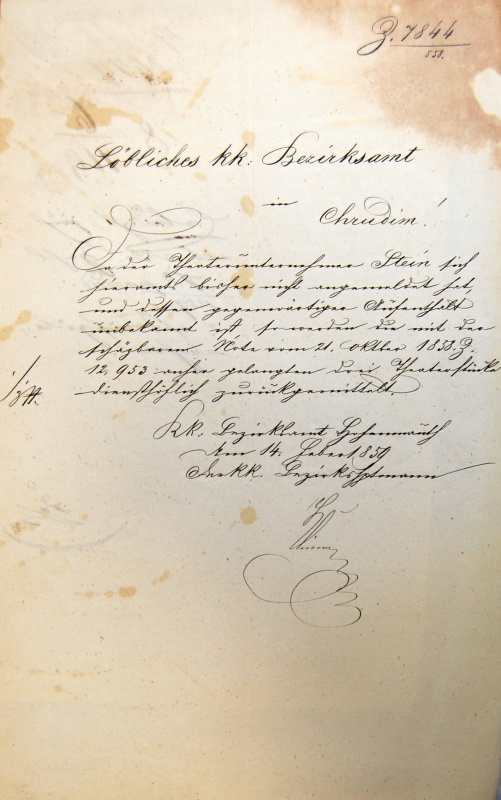 Z. 7844
558.
Löbliches kk. Bezirksamt
in
Chrudim!
Da der Theaterunternehmer Stein sich
hieramts bisher nicht angemeldet hat,
und dessen gegenwärtiger Aufenthalt
unbekannt ist, so werden die mit der
schäzbaren Note vom 21. Oktber 1858 Z.
12,953 anher gelangten drei Theaterstücke
diensthöflich zurückgemittelt.
Kk. Bezirksamt Hohenmauth
Am 14. Feber 1859
Der kk. Bezirkshptmann